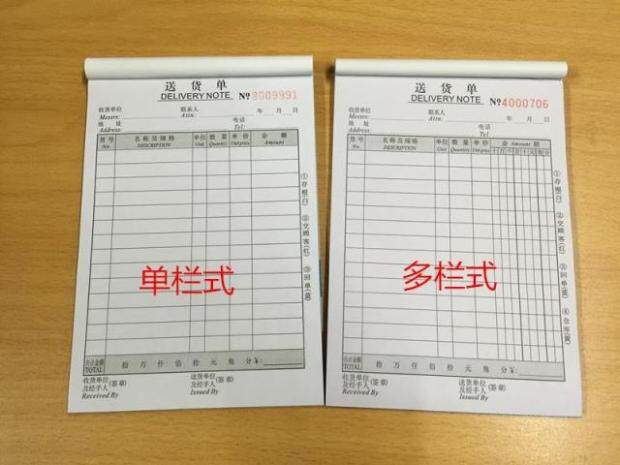 送货单
DELIVERY NOTE №8009991
收货单位 联系人 年 月 日
Messrs: Attn:
地址 电话
Address: Tel:
货号 名称及规格 单位 数量 单价 金额
No. DESCRIPTION Unit Quantity Unit price Amount
①存根(白) ②交顾客(红) ③回单(黄)
单栏式
合计金额 拾 万 仟 佰 拾 元 角 分 ¥:
TOTAL
收货单位 (签章) 送货单位 (签章)
及经手人 及经手人
Received By Issued By
送货单
DELIVERY NOTE №4000706
收货单位 联系人 年 月 日
Messrs: Attn:
地址 电话
Address: Tel:
货号 名称及规格 单位 数量 单价 金 Amount 额
No. DESCRIPTION Unit Quantity Unit price 十万千百十元角分
①存根(白) ②交顾客(红) ③回单(蓝) ④仓库(黄)
多栏式
合计金额 拾 万 仟 佰 拾 元 角 分 ¥:
TOTAL
收货单位 (签章) 送货单位 (签章)
及经手人 及经手人
Received By Issued By